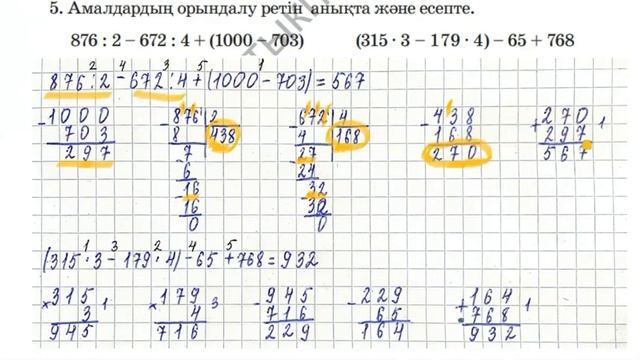 5. Амалдардың орындалу ретін анықта және есепте.
876 : 2 – 672 : 4 + (1000 – 703) (315 · 3 – 179 · 4) – 65 + 768
2 4 3 5 1
876 : 2 – 672 : 4 + (1000 – 703) = 567
– 1000 – 876 2 – 672 4 – 438 + 270 1
703 8 438 4 168 168 297
297 – 7 – 27 270 567
6 24
– 16 – 32
16 32
0 0
1 3 2 4 5
(315 · 3 – 179 · 4) – 65 + 768 = 932
× 315 1 × 179 3 – 945 – 229 + 164 1
3 4 716 65 768
945 716 229 164 932